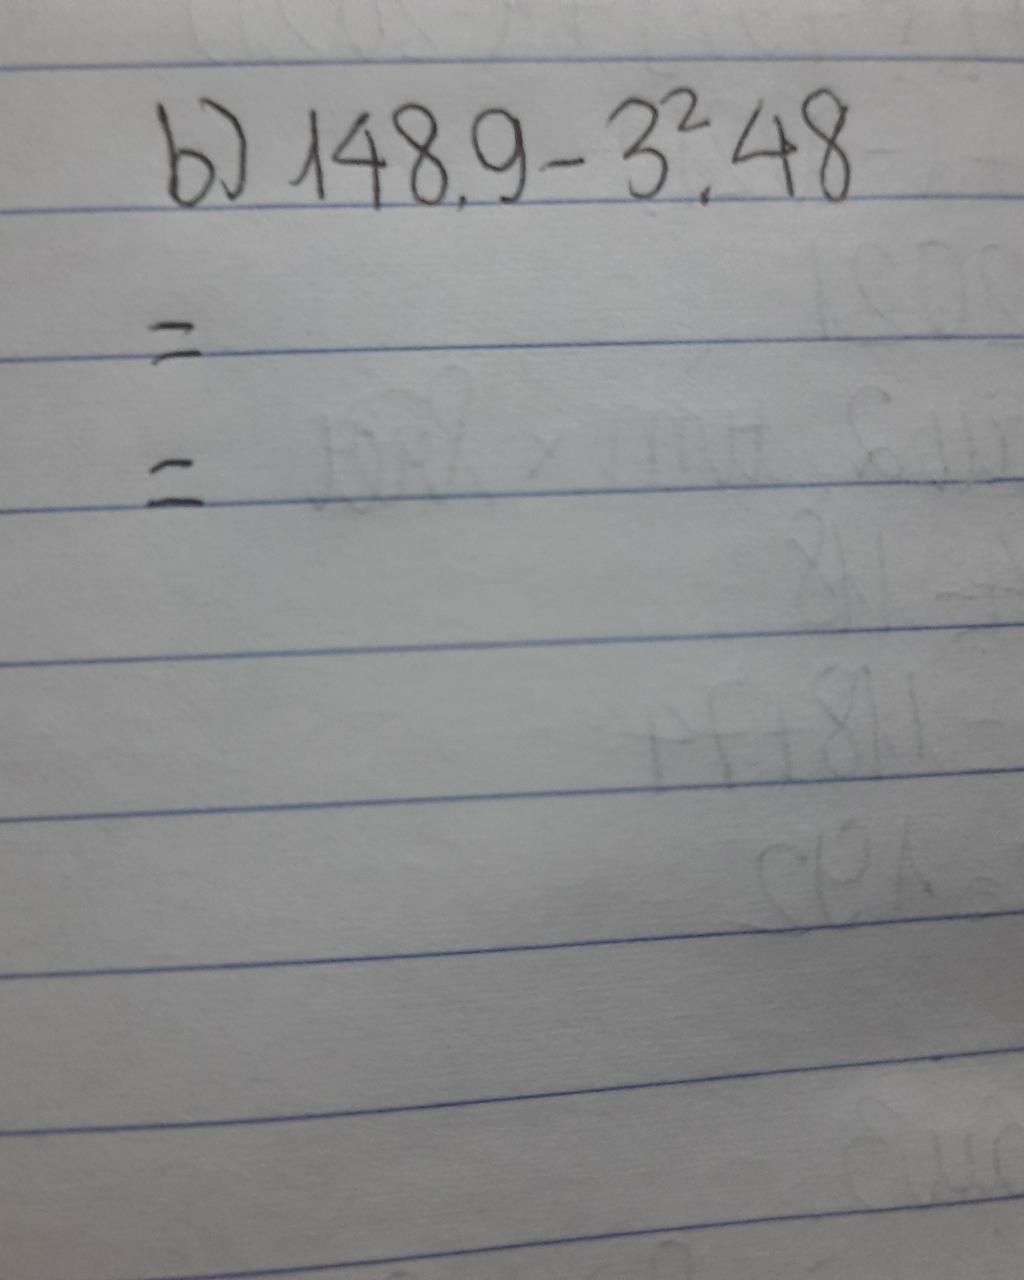 b) 148.9 - 3².48
=
=